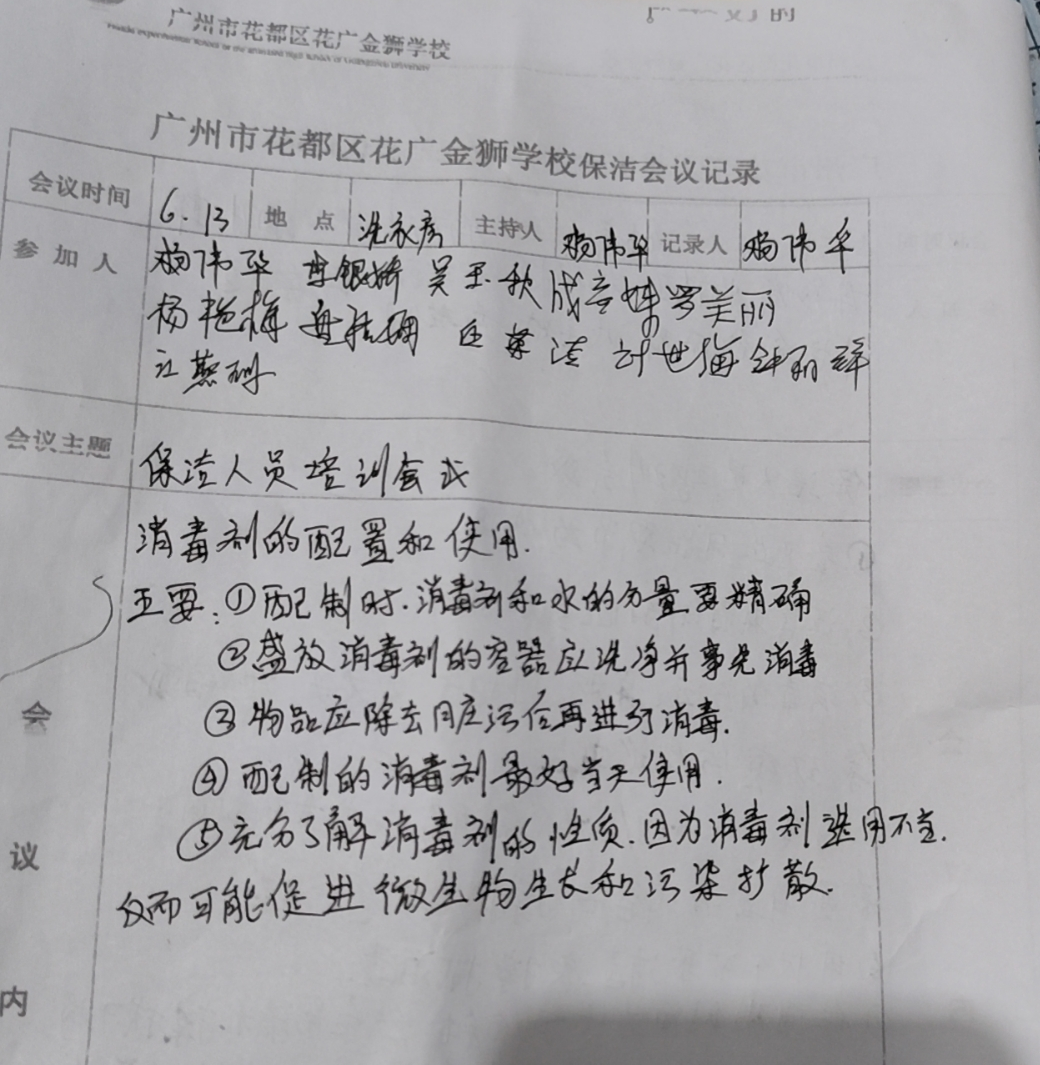 广州市花都区花广金狮学校
广州市花都区花广金狮学校保洁会议记录
会议时间 6.13 地点 洗衣房 主持人 杨伟华 记录人 杨伟华
参加人 杨伟华 李银娇 吴玉秋 成音娣 罗美丽
杨艳梅 盘 区翠洁 计世梅 钟丽群
江燕
会议主题 保洁人员培训会议
消毒剂的配置和使用.
主要:①配制时.消毒剂和水的分量要精确
②盛放消毒剂的容器应洗净并事先消毒
会 ③物品应除去 污后再进行消毒.
④配制的消毒剂最好当天使用.
议 ⑤充分了解消毒剂的性质.因为消毒剂选用不当.
反而可能促进微生物生长和污染扩散.
内